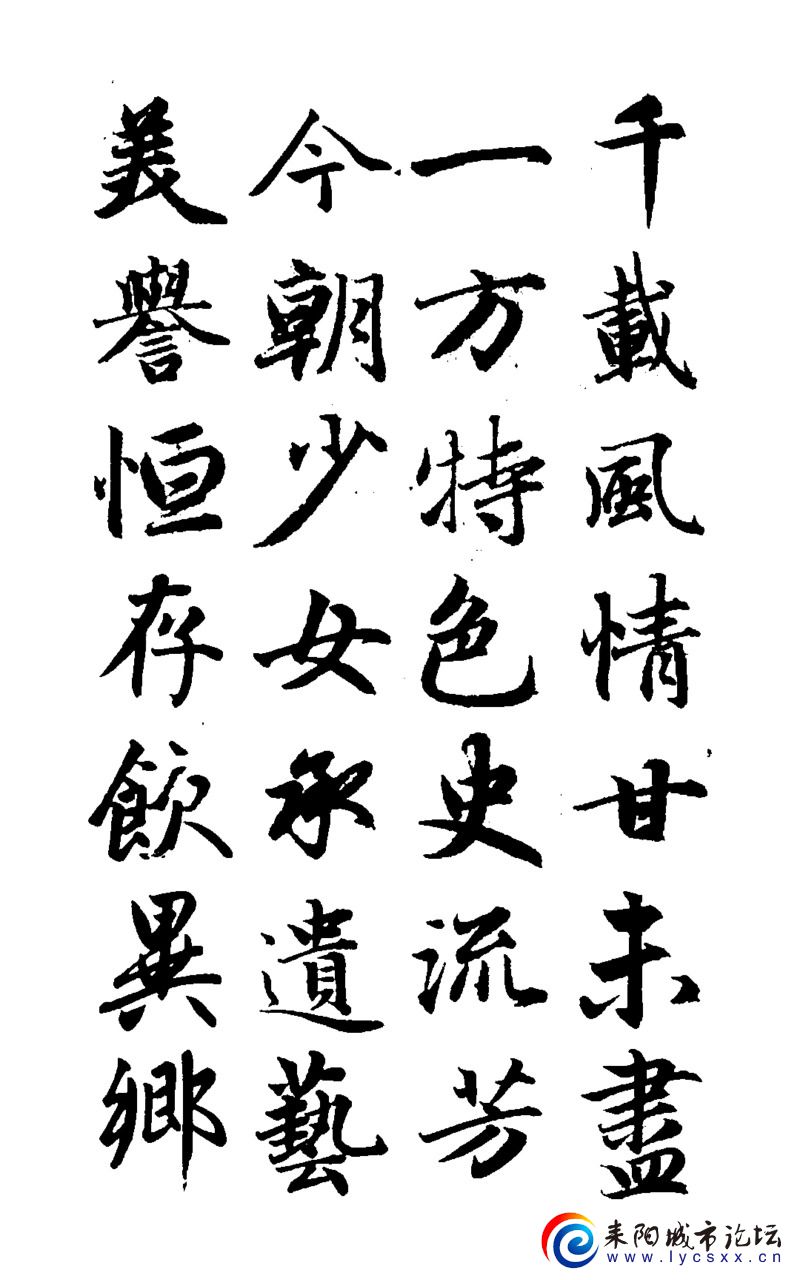 千載風情甘未盡
一方特色史流芳
今朝少女承遺藝
美譽恒存飲異鄉
耒阳城市论坛
www.lycsxx.cn